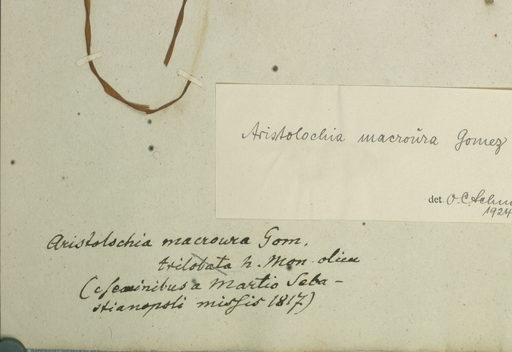 Aristolochia macroŭra Gomez
det. O.C. Schm
1924
Aristolochia macroura Gom.
trilobata h. Mon. olim
(e seminibus a Martio Seba-
stianopoli missis 1817.)